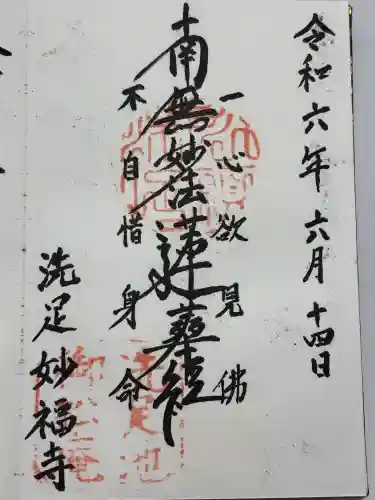 令和六年六月十四日
一心欲見佛
南無妙法蓮華経
不自惜身命
洗足妙福寺